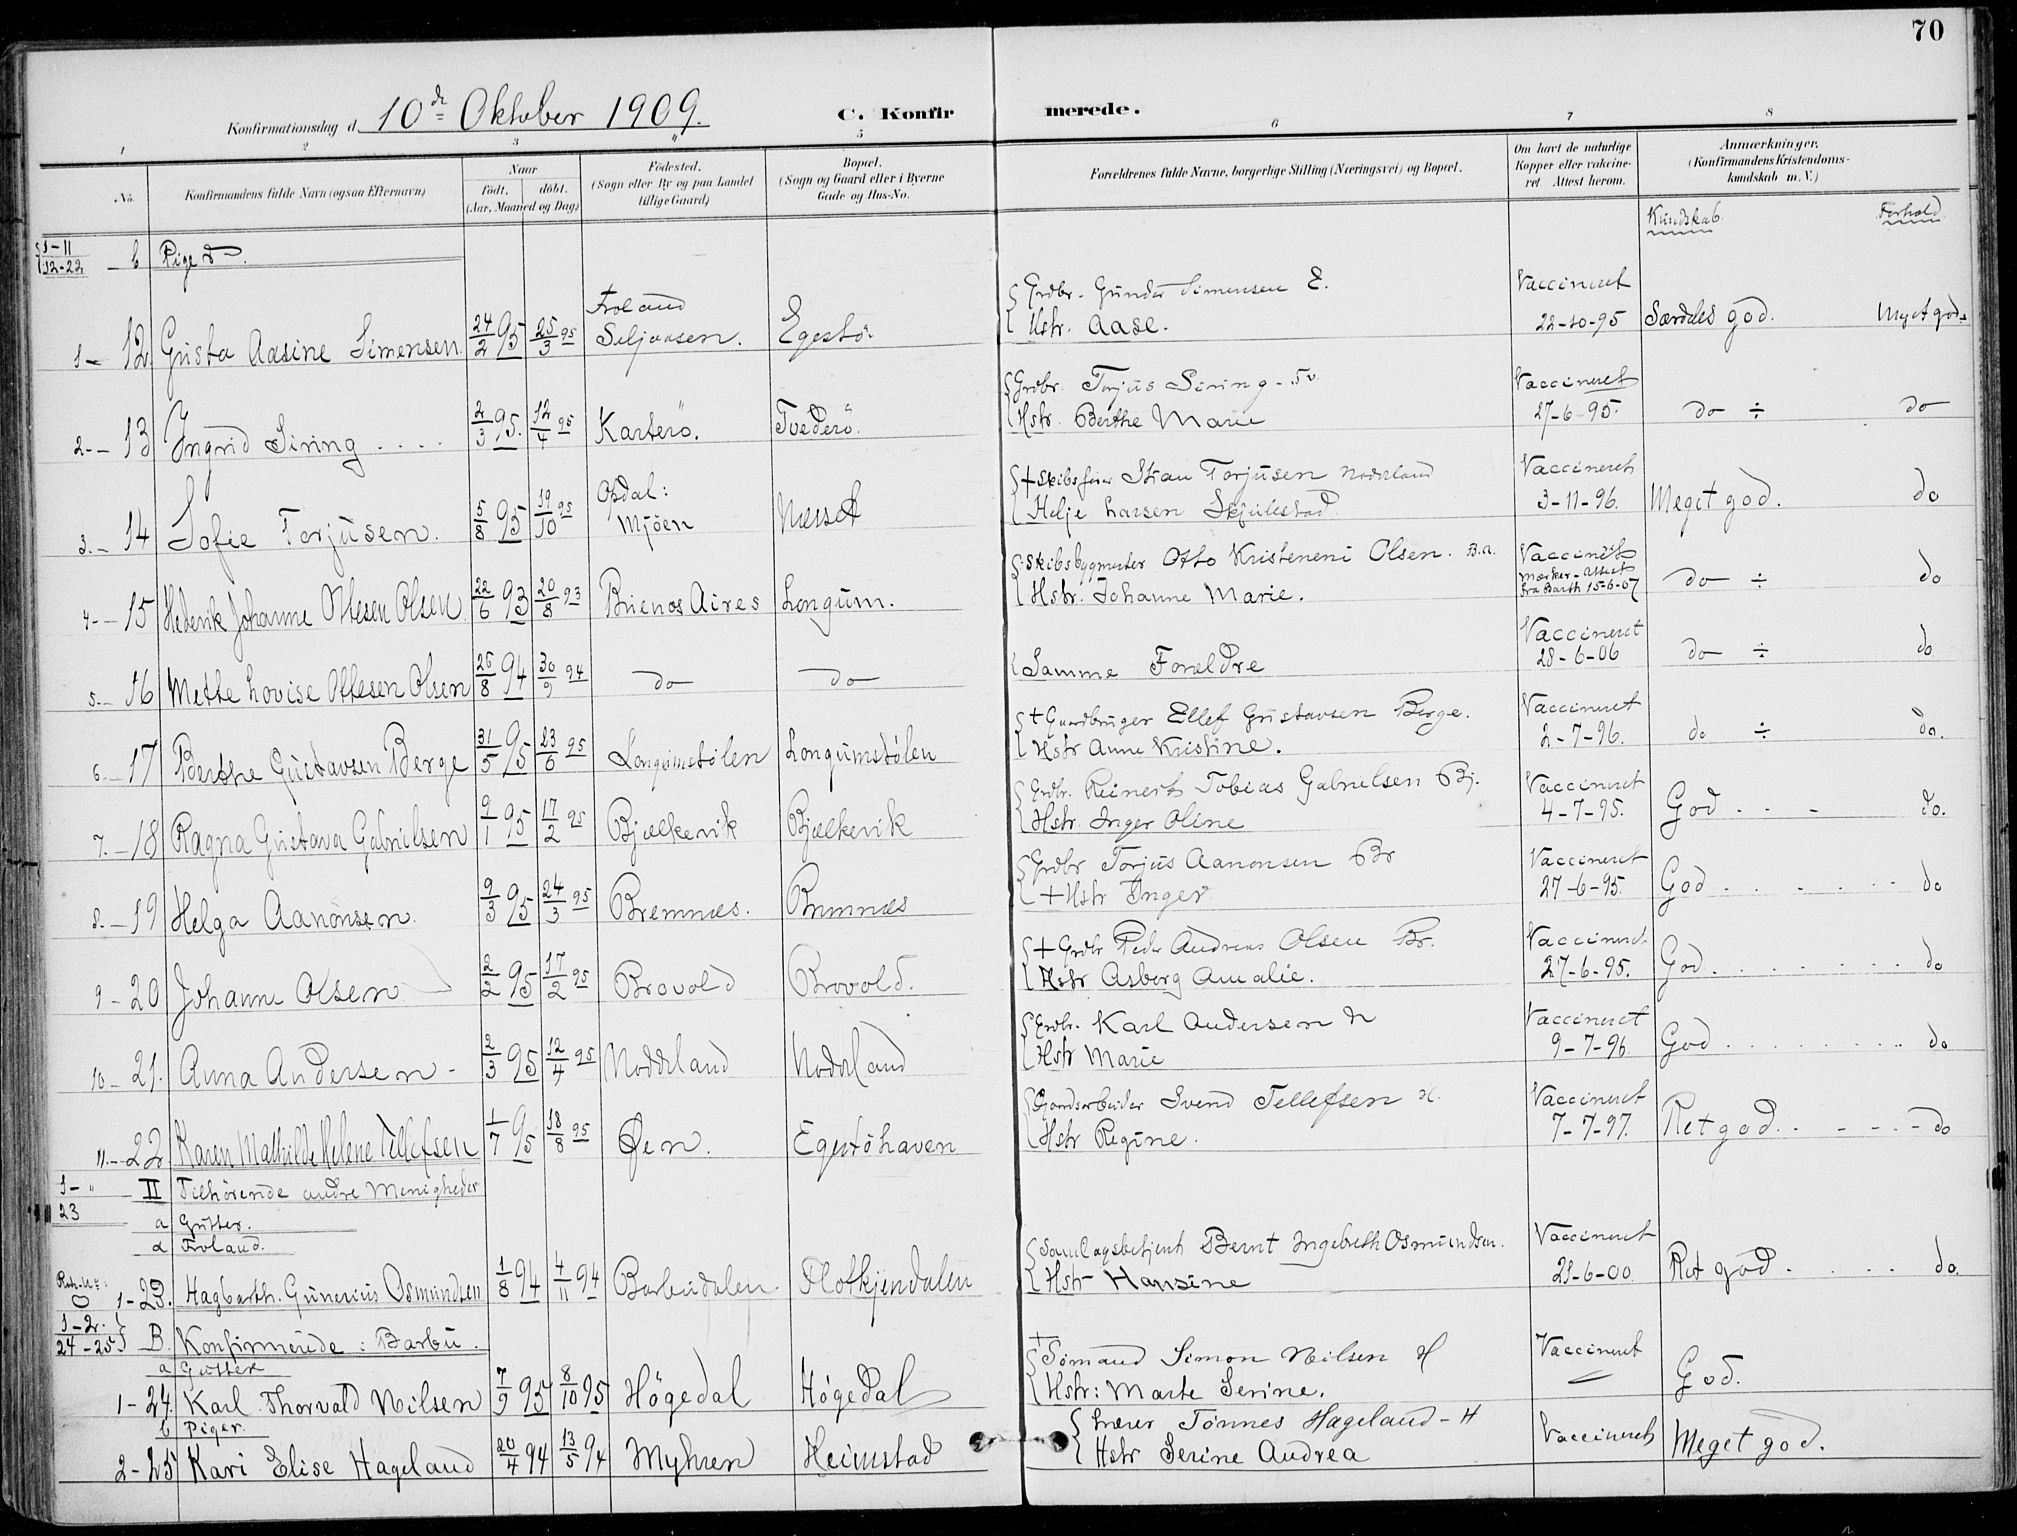 70
Konfirmationsdag d. 10de Oktober 1909.
C. Konfirmerede.
1 2 3 4 5 6 7 8
No.
Konfirmandens fulde Navn (ogsaa Efternavn)
Naar
født. døbt.
(Aar, Maaned og Dag)
Fødested.
(Sogn eller By og paa Landet
tillige Gaard)
Bopæl.
(Sogn og Gaard eller i Byerne
Gade og Hus-No.
Forældrenes fulde Navne, borgerlige Stilling (Næringsvei) og Bopæl.
Om havt de naturlige
Kopper eller vakcine-
ret Attest herom.
Anmærkninger.
(Konfirmandens Kristendoms-
kundskab m. V.)
Kundskab. Forhold
1-11
12-22 b Piger
Froland Grdbr. Gunder Simensen E. Vaccineret
1- 12 Gusta Aasine Simensen 24/2 95 25/3 95 Seljaasen. Egestø Hstr. Aase. 22-10-95 Særdeles god. Myet god.
Grdbr. Torjus Siring - Tv Vaccineret
2- 13 Ingrid Siring .... 2/3 95. 12/4 95 Karterö. Tvederö. Hstr. Berthe Marie 27-6-95. do ÷ do
Opdal: + Skibsfører Torjusen Vaccineret
3.- 14 Sofie Torjusen. 5/8 95 19/10 95 Mjöen Næsset Helje Larsen Skjulestad 3-11-96. Meget god. do
Skibsbygmester Otto Olsen. B.A. Vaccineret
Mærker - Attest
4- 15 Johanne Ottesen Olsen 22/6 93 20/8 93 Buenos Aires Longum. Hstr. Johanne Marie. fra Barth 15-6-07 do ÷ do
Vaccineret
5.- 16 Mette Lovise Ottesen Olsen 25/8 94 30/9 94 do do Samme Foreldre 28-6-06 do ÷ do
+ Gaardbruger Ellef Gustavsen Berge. Vaccineret
6.- 17 Berthe Gustavsen Berge 31/5 95 23/6 95 Longumstølen Longumstølen Hstr Anne Kristine. 2-7-96. do ÷ do.
Grdbr. Reinert Tobias Gabrielsen Bj. Vaccineret
7.- 18 Ragna Gustava Gabrielsen 9/1 95 17/2 95 Bjælkevik Bjælkevik Hstr. Inger Oline 4-7-95. God . . - do.
Grdbr Torjus Aanonsen Br Vaccineret
8.- 19 Helga Aanonsen. 9/3 95 24/3 95 Bremnæs. Bremnæs + Hstr Inger 27-6-95. God . . . . . do
+ Grdbr Peder Andreas Olsen Br. Vaccineret
9- 20 Johanne Olsen 2/2 95 17/2 95 Brovold Brovold. Hstr Asborg Amalie. 27-6-95. God . . . . . . do
Grdbr. Karl Andersen N Vaccineret
10- 21. Anna Andersen - 2/3 95 12/4 95 Noddeland Noddeland Hstr Marie 9-7-96 God . . . . . . do
Svend Tellefsen Vaccineret
11.- 22 Karen Mathilde Helene Tellefsen 1/7 95 18/8 95 Øen. Egestöhaven Hstr Regine. 7-7-97. Ret god . . - - . - do
1- "
23 II Tilhørende andre Menigheder
a Gutter.
α Froland.
Samlagsbetjent Bernt Ingebreth Osmundsen. Vaccineret
1-23. Hagbarth. Gunerius Osmundsen 1/8 94 4/11 94 Barbudalen. Flotkjendalen Hstr Hansine 21-6-00 Ret god . . . . do.
1-2.
24-25 B. Konfirmerede : Barbu.
a Gutter
+ Sömand Simon Nilsen H Vaccineret
1- 24. Karl Thorvald Nilsen 7/9 95 8/10 95 Högedal Högedal Hstr: Marte Serine. God.
b Piger.
Lærer Tønnes Hageland - H Vaccineret
2- 25 Kari Elise Hageland 20/4 94 13/5 94 Myhren Heimstad Hstr Serine Andrea Meget god.